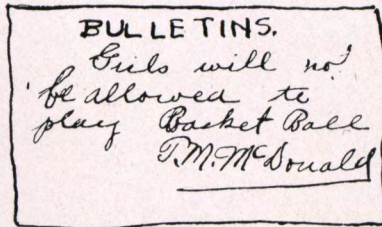 BULLETINS.
Girls will not
be allowed to
play Basket Ball
P.M. McDonald